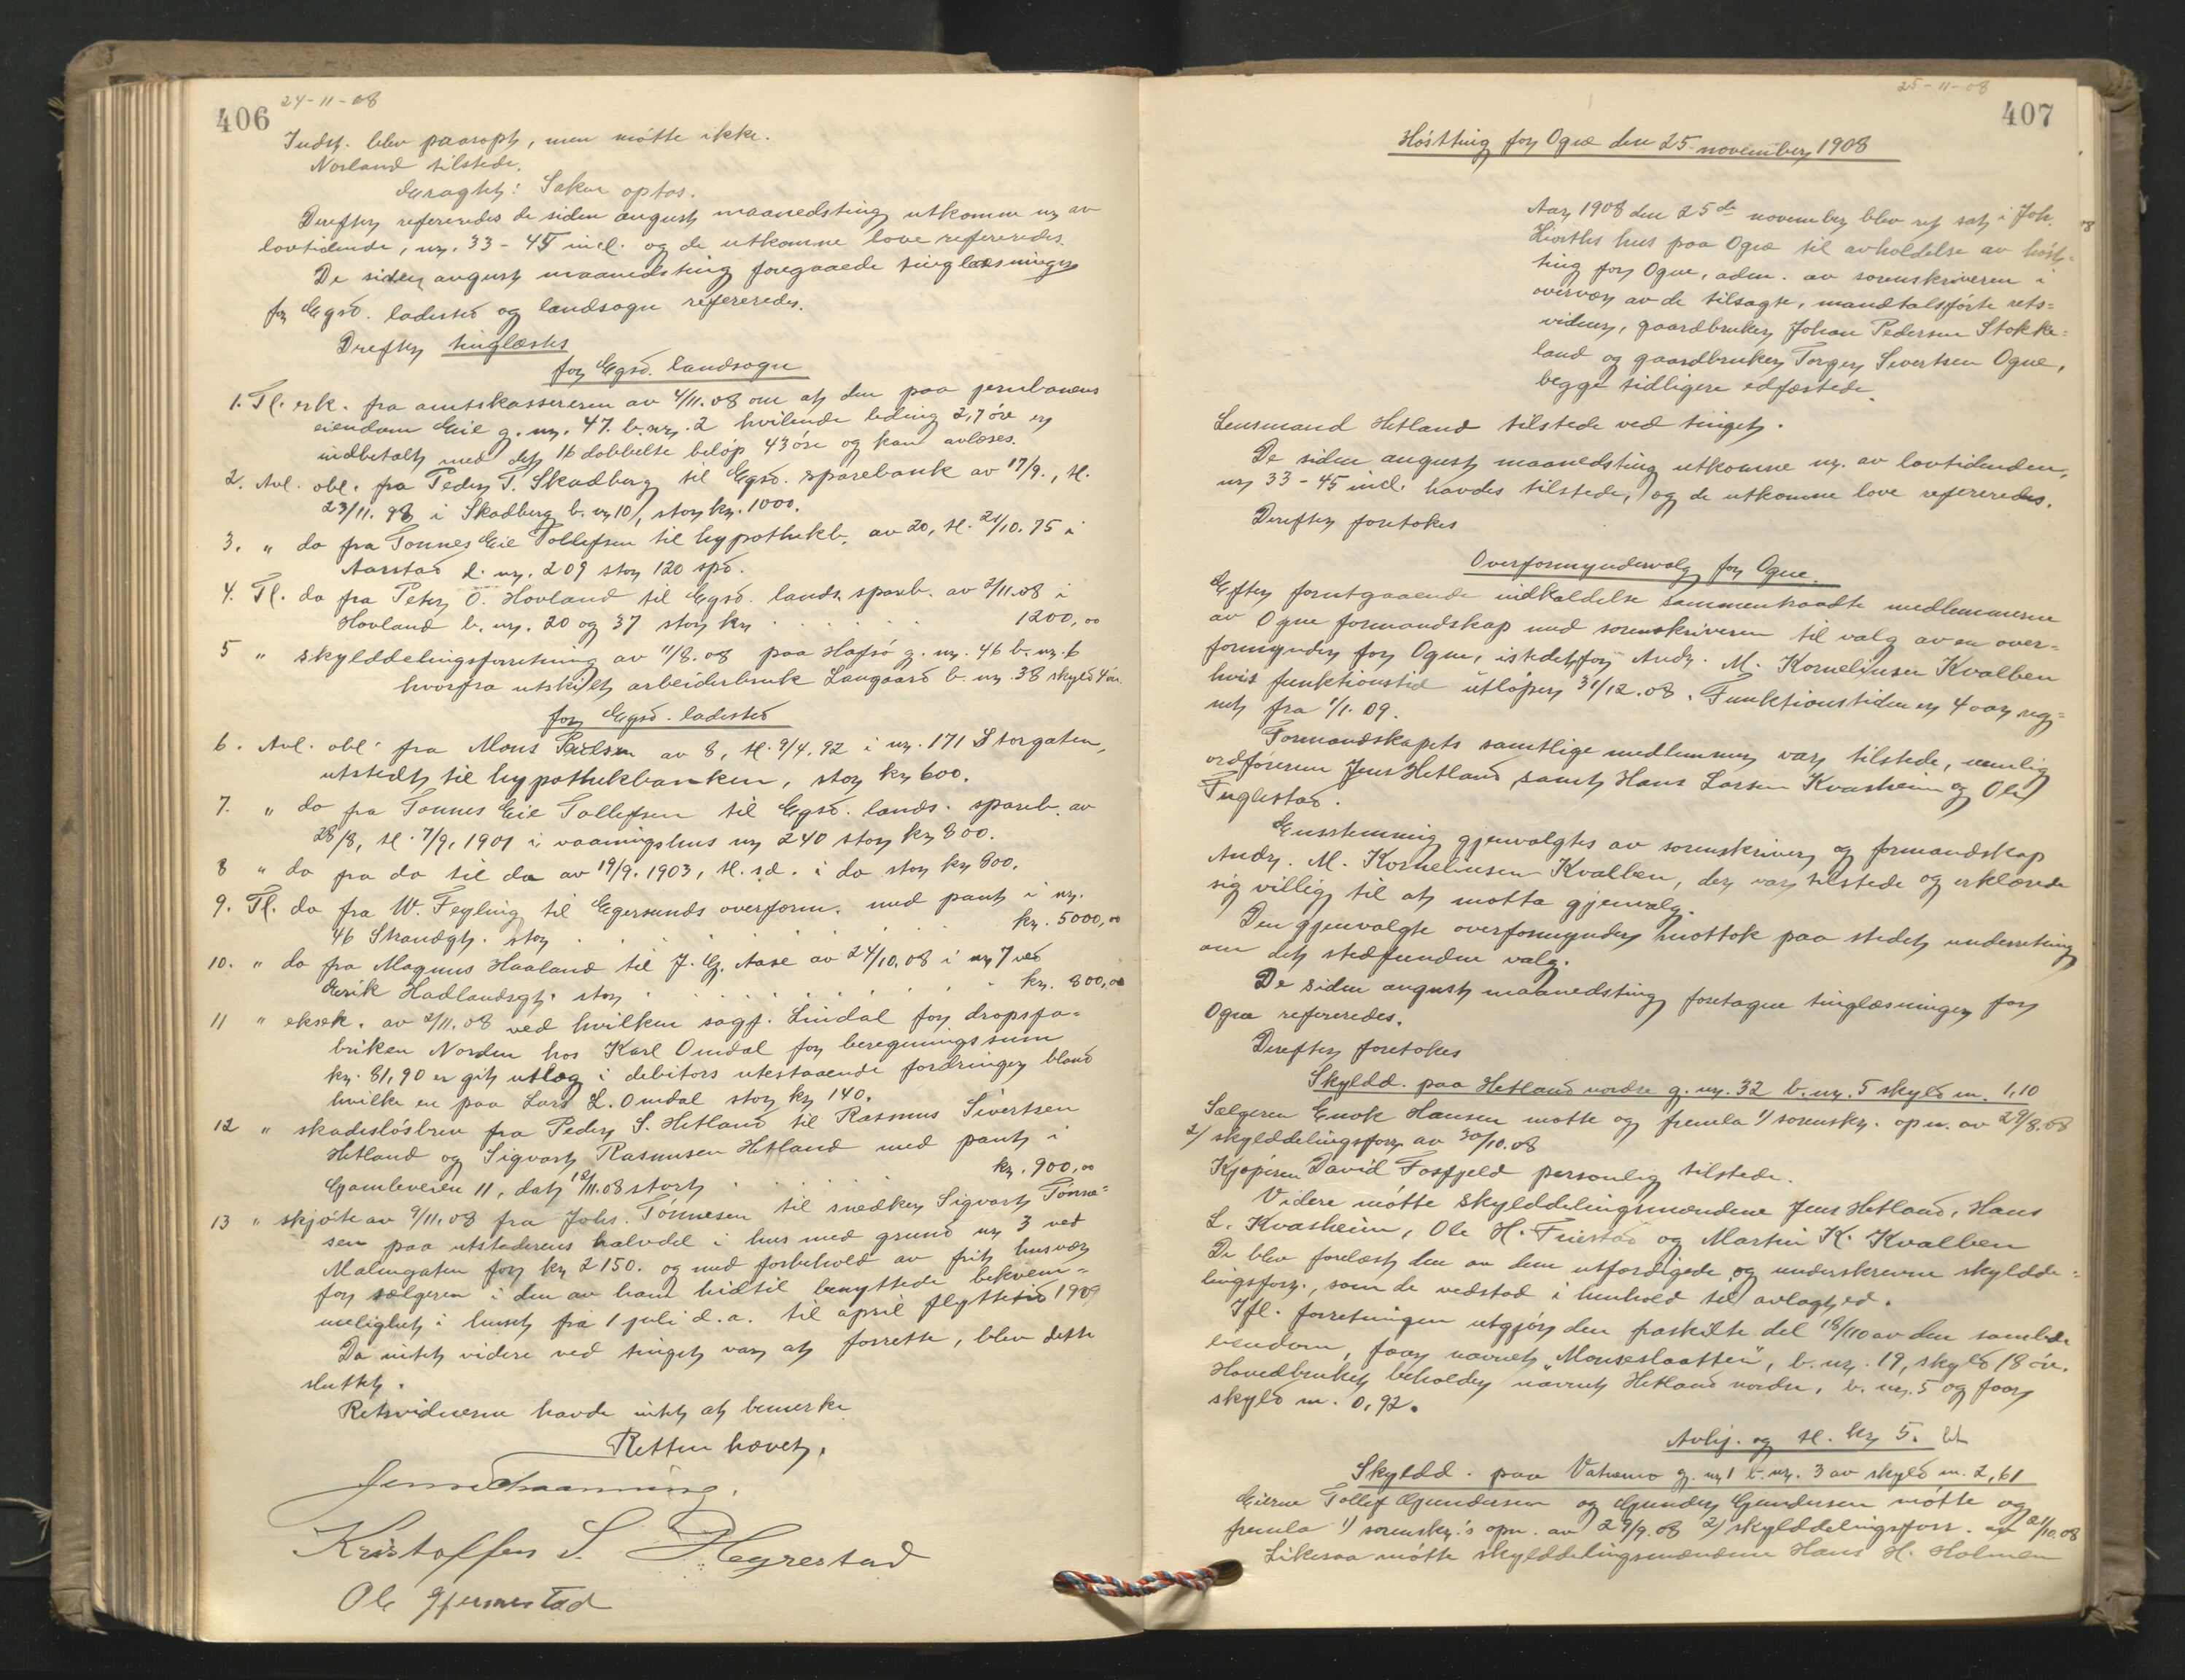 406
24-11-08
Indst. blev paaropt, men møtte ikke.
Norland tilstede.
Eragtet: Saken optas.
Derefter refereredes de siden august maanedsting utkomne nr av
lovtidende, nr. 33 - 45 incl. og de utkomne love refereredes.
De siden august maanedsting foregaaede tinglæsninger
for Egsd. ladested og landsogn refereredes.
Drefter tinglæstes
for Egsd. landsogn
1. Tl. erk. fra amtskassereren av 4/11.08 om at den paa jernbanens
eiendom Eie g. nr. 47. b. nr. 2 hvilende leding 2,7 øre er
indbetalt med det 16 dobbelte beløp 43 øre og kan avlæses.
2. Avl. obl. fra Peder T. Skadberg til Egsd. sparebank av 17/9., tl.
23/11. 98 i Skadberg b. nr 10, stor kr. 1000.
3. " do fra Tønnes Eie Tollefsen til hypothekb. av 20, tl. 21/10. 75 i
Aarstad l. nr. 209 stor 120 spd.
4. Tl. do fra Peter O. Hovland til Egsd. lands. spareb. av 2/11.08 i
Hovland b. nr. 20 og 37 stor kr . . . . . . 1200,00
5 " skylddelingsforretning av 11/8.08 paa Hafsø g. nr. 46 b. nr. 6
hvorfra utskilt arbeiderbruk Langaard b. nr. 38 skyld 4 øre.
for Egsd. ladested
6. Avl. obl. fra Mons Paulsen av 8, tl. 9/4. 92 i nr. 171 Storgaten,
utstedt til hypothekbanken, stor kr 600.
7. " do fra Tønnes Eie Tollefsen til Egsd. lands. spareb. av
28/8, tl. 7/9, 1901 i vaaningshus nr 240 stor kr 800.
8 " do fra do til do av 19/9. 1903, tl. s.d. i do stor kr 800.
9. Tl. do fra W. Feyling til Egersunds overform. med pant i nr.
46 Strandgt. stor . . . . . . kr. 5000,00
10. " do fra Magnus Haaland til J. G. Aase av 24/10.08 i nr 7 ved
Erik Hadlandsgt. stor . . . . . . kr. 800,00
11 " eksek. av 2/11.08 ved hvilken sagf. Lindal for dropsfa-
briken Norden hos Karl Omdal for beregningssum
kr. 81,90 er git utlæg i debitors utestaaende fordringer bland
hvilke en paa Lars L. Omdal stor kr 140.
12 " skadesløsbrev fra Peder S. Hetland til Rasmus Sivertsen
Hetland og Sigvart Rasmusen Hetland med pant i
Gamleveien 11, dat. 12/11.08 stort . . . . kr. 900,00
13 " skjøte av 9/11.08 fra Johs. Tønnesen til snedker Sigvart Tønne-
sen paa utstederens halvdel i hus med grund nr 3 ved
Malmgaten for kr 2150. og med forbehold av frit husvær
for sælgeren i den av ham hidtil benyttede bekvem-
melighet i huset fra 1 juli d. a. til april flyttetid 1909
Da intet videre ved tinget var at forrette, blev dette
sluttet.
Retsvidnerne havde intet at bemerke
Retten hævet.
Kristoffer S. Hegrestad
Ole Gjermestad
25-11-08
407
Høstting for Ogne den 25 november 1908
Aar 1908 den 25de november blev ret sat i Joh.
hus paa Ogne til avholdelse av høst-
ting for Ogne, adm. av sorenskriveren i
overvær av de tilsagte, mandtalsførte rets-
vidner, gaardbruker Johan Pedersen Stokke-
land og gaardbruker Torger Sivertsen Ogne,
begge tidligere edfæstede.
Lensmand Hetland tilstede ved tinget.
De siden august maanedsting utkomne nr. av lovtidenden,
nr 33 - 45 incl. havdes tilstede, og de utkomne love refereredes.
Derefter foretokes
Overformyndervalg for Ogne.
Efter forutgaaende indkaldelse sammentraadte medlemmerne
av Ogne formandskap med sorenskriveren til valg av en over-
formynder for Ogne, istedetfor Andr. M. Korneliusen Kvalben
hvis funktionstid utløper 31/12.08. Funktionstiden er 4 aar reg-
net fra 1/1. 09.
Formandskapets samtlige medlemmer var tilstede, nemlig
ordføreren Jens Hetland samt Hans Larsen Kvasheim og Ole
Fuglestad.
Enstemmig gjenvalgtes av sorenskriver og formandskap
Andr. M. Korneliusen Kvalben, der var tilstede og erklærede
sig villig til at motta gjenvalg.
Den gjenvalgte overformynder mottok paa stedet underretning
om det stedfundne valg.
De siden august maanedsting foretagne tinglæsninger for
Ogne refereredes.
Derefter foretokes
Skyldd. paa Hetland nordre g. nr. 32 b. nr. 5 skyld m. 1,10
Sælgeren Enok Hansen møtte og fremla 1) sorenskr. opn. av 29/8.08
2) skylddelingsforr av 30/10.08
Kjøperen David Fosfjeld personlig tilstede.
Videre møtte skylddelingsmændene Jens Hetland, Hans
L. Kvasheim, Ole H. Friestad og Martin K. Kvalben
De blev forelæst den av dem utfærdigede og underskrevne skyldde-
lingsforr., som de vedstod i henhold til avlagt ed.
Ifl. forretningen utgjør den fraskilte del 18/110 av den samlede
eiendom, faar navnet "Monseslaatten", b. nr. 19, skyld 18 øre.
Hovedbruket beholder navnet Hetland nordre, b. nr. 5 og faar
skyld m. 0,92.
Avhj. og tl. kr 5. bt
Skyldd. paa Vatnemo g. nr 1 b. nr. 3 av skyld m. 2,61
Eierne Tollef Gundersen og Gunder Gundersen møtte og
fremla 1) sorenskr.'s opn. av 29/9.08 2) skylddelingsforr. av 21/10.08
Likesaa møtte skylddelingsmændene Hans H. Holmen